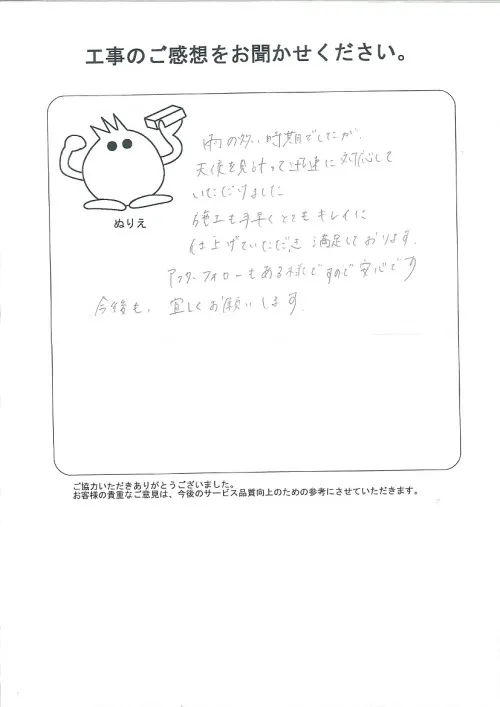 工事のご感想をお聞かせください。
ぬりえ
雨の多い時期でしたが、
天候を見計って迅速に対応して
いただけました
施工も手早くとてもキレイに
仕上げていただき満足しております。
アフターフォローもある様ですので安心です
今後も、宜しくお願いします。
ご協力いただきありがとうございました。
お客様の貴重なご意見は、今後のサービス品質向上のための参考にさせていただきます。